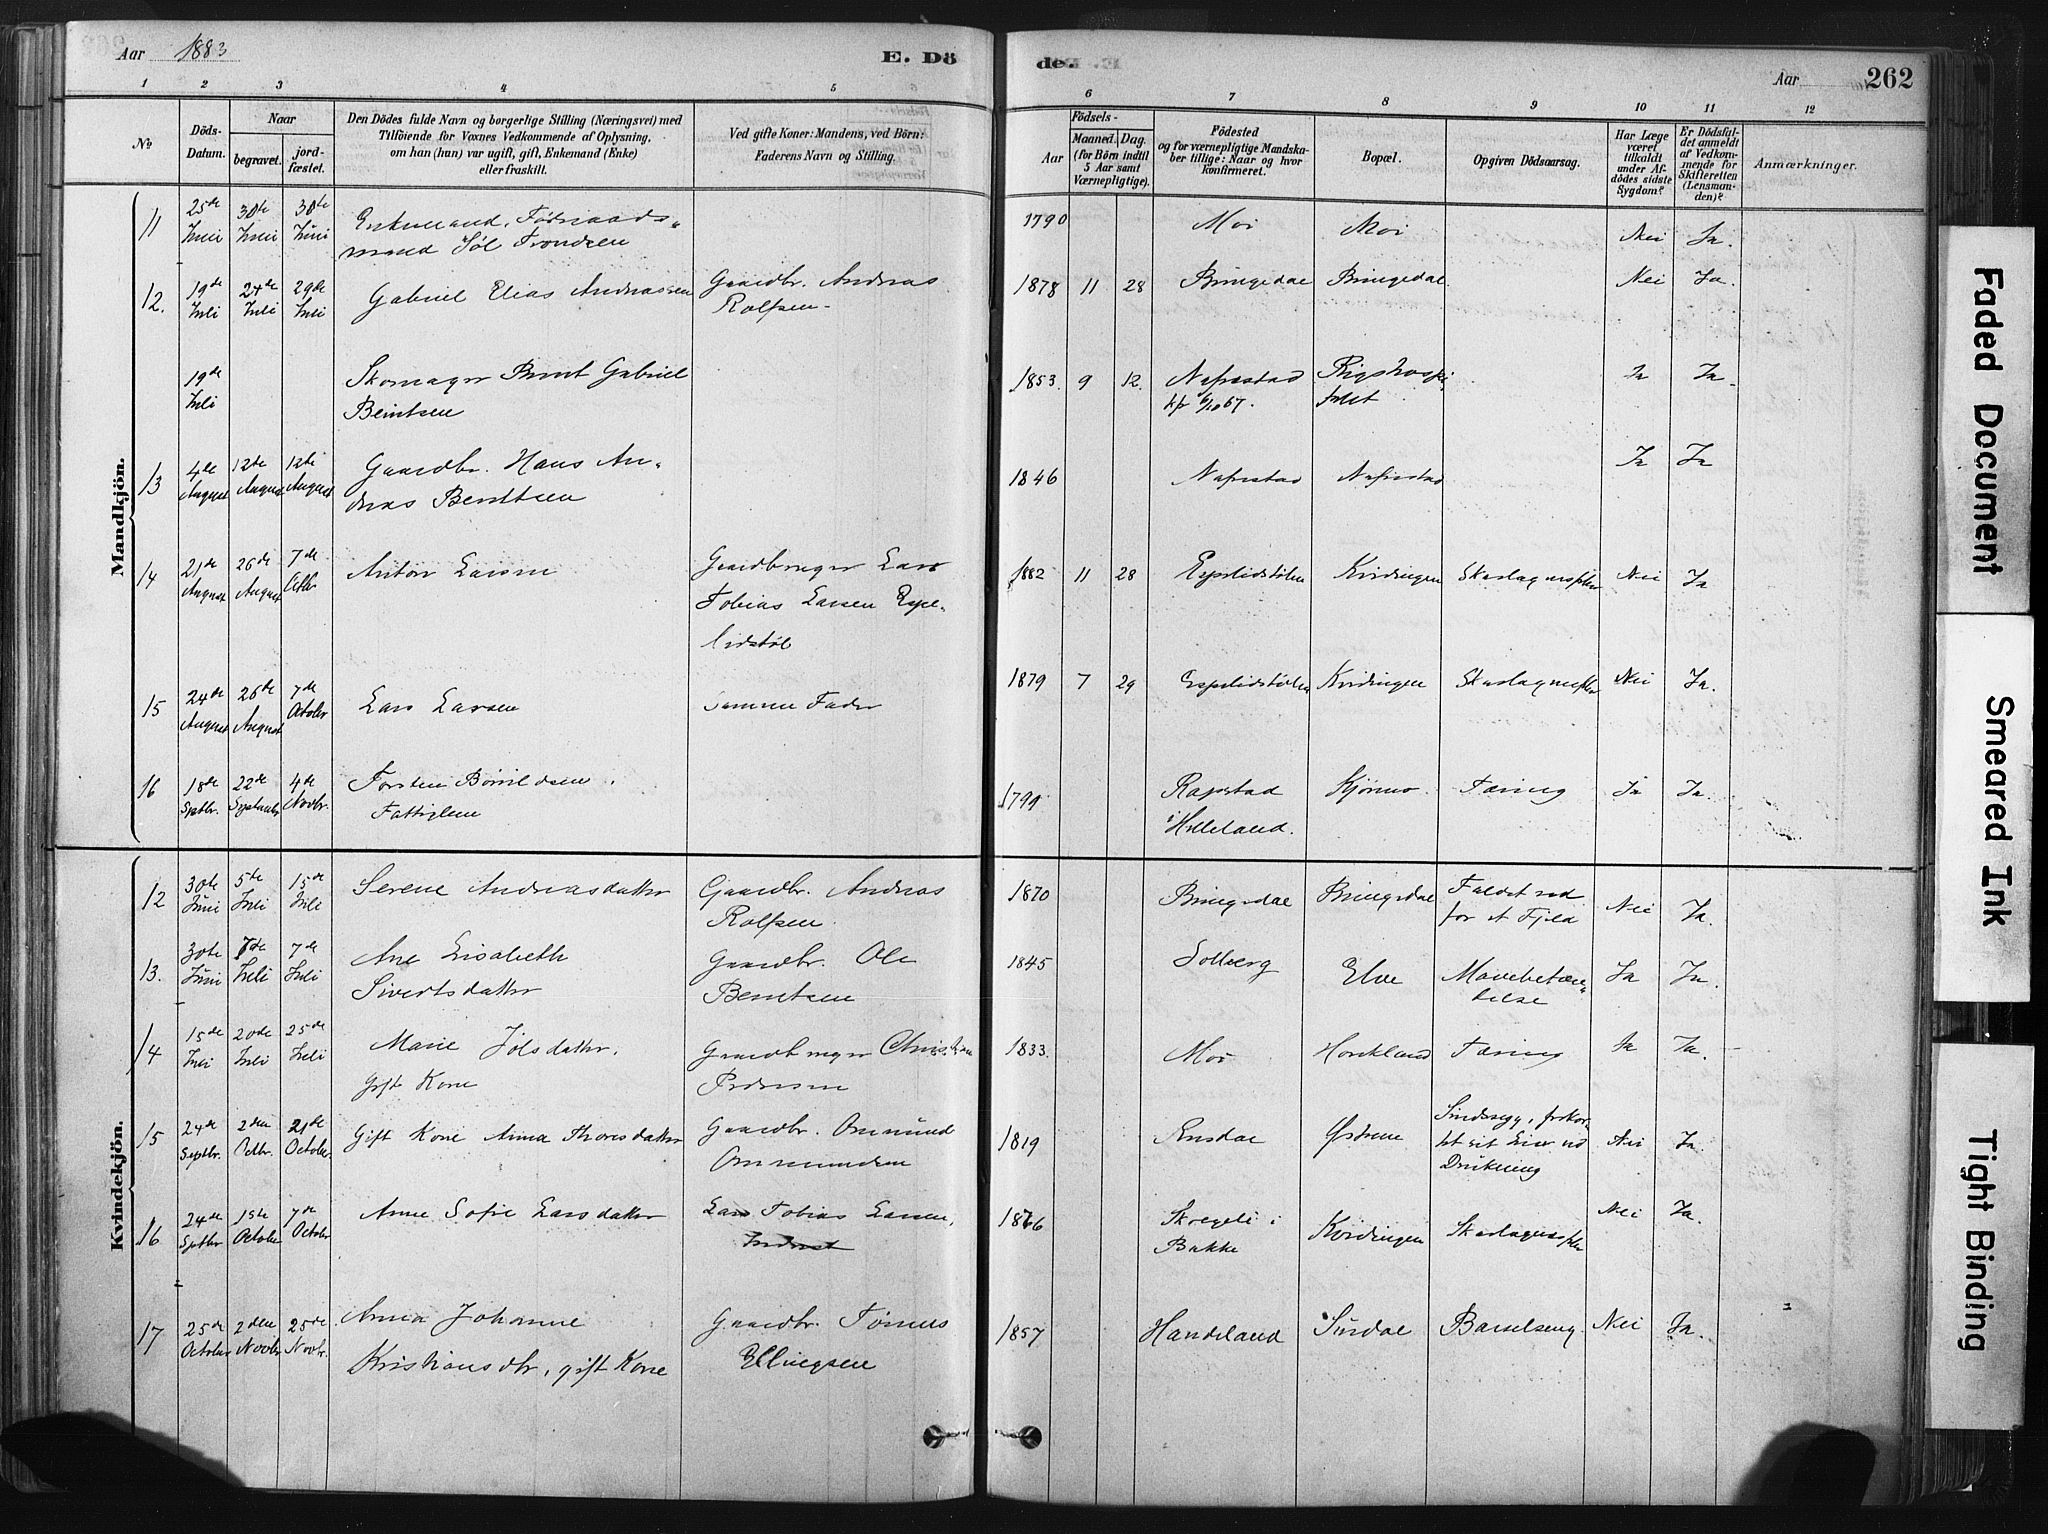 Aar 1883
E. Döde.
Aar 262
1 2 3 4 5 6 7 8 9 10 11 12
No
Döds-Datum.
Naar
begravet. jordfæstet.
Den Dödes fulde Navn og borgerlige Stilling (Næringsvei) med
Tilföiende for Voxnes Vedkommende af Oplysning,
om han (hun) var ugift, gift, Enkemand (Enke)
eller fraskilt.
Ved gifte Koner: Mandens, ved Börn:
Faderens Navn og Stilling.
Födsels-
Aar Maaned. Dag.
(for Börn indtil
5 Aar samt
Værnepligtige).
Födested
og for værnepligtige Mandska-
ber tillige: Naar og hvor
konfirmeret.
Bopæl.
Opgiven Dödsaarsag.
Har Læge
været
tilkaldt
under Af-
dödes sidste
Sygdom?
Er Dödsfal-
det anmeldt
af Vedkom-
mende for
Skifteretten
(Lensman-
den)?
Anmærkninger.
Mandkjön.
11 25de Juni 30te Juni 30te Juni Enkemand, Föderaads-
mand Jöl Trondsen 1790 Moi Moi Nei Ja.
12. 19de Juli 24de Juli 29de Juli Gabriel Elias Andreassen Gaardbr. Andreas
Rolfsen 1878 11 28 Bringedal Bringedal. Nei Ja.
19de Juli Skomager Bernt Gabriel
Berntsen 1853. 9 12. Nafrestad Rigshospi-
kf 6/10 67. talet Ja Ja.
13 4de August 12te August 12te August Gaardbr. Hans An-
dreas Berntsen 1846 Nafrestad Nafrestad Ja Ja
14 21de August 26de August 7de Octbr Anton Larsen Gaardbruger Lars
Tobias Larsen Espe-
lidstöl 1882 11 28 Espelidstölen Kvidingen Skarlagensfeber Nei Ja
15 24de August 26de August 7de Octobr Lars Larsen Samme Fader 1879 7 29 Espelidstölen Kvidingen Skarlagensfeber Nei Ja.
16 18de Septbr. 22de Septembr 4de Novbr. Torsten Börildsen.
Fattiglem 1799 Rapstad
i Helleland. Tæring Ja Ja.
Kvindekjön.
12 30te Juni 5te Juli 15de Juli Serene Andreasdatter Gaardbr. Andreas
Rolfsen. 1870 Bringsdal Bringsdal Faldet ud
for et Fjeld Nei Ja.
13. 30te Juni 7de Juli 7de Juli Ane Lisabeth
Sivertsdatter Gaardbr. Ole
Berntsen 1845 Solberg Elve Mavebetæn-
delse Ja Ja.
14 15de Juli 20de Juli 25de Juli Marie Jölsdatter.
Gift Kone Gaardbruger Christian
Pedersen 1833. Moi Tæring Ja Ja.
15 24de Septbr. 2den Octbr. 21de Octobr Gift Kone Anna Thoresdatter Gaardbr. Ommund
Ommundsen 1819 Sindssyg, forkor-
tet sit Liv ved
Drukning Nei Ja.
16 24de Septbr 1ste October 7de Octobr Anne Sofie Larsdatter Lars Tobias Larsen, 1866 Skregeli i
Bakke Kvidingen Skarlagensfeber Nei Ja.
17 25de October 2den Novbr 25de Novbr. Anna Johanne
Kristiansdtr, gift Kone Gaardbr. Tönnes
Ellingsen 1857 Handeland Sirdal Barselseng Nei Ja.
Faded Document
Smeared Ink
Tight Binding